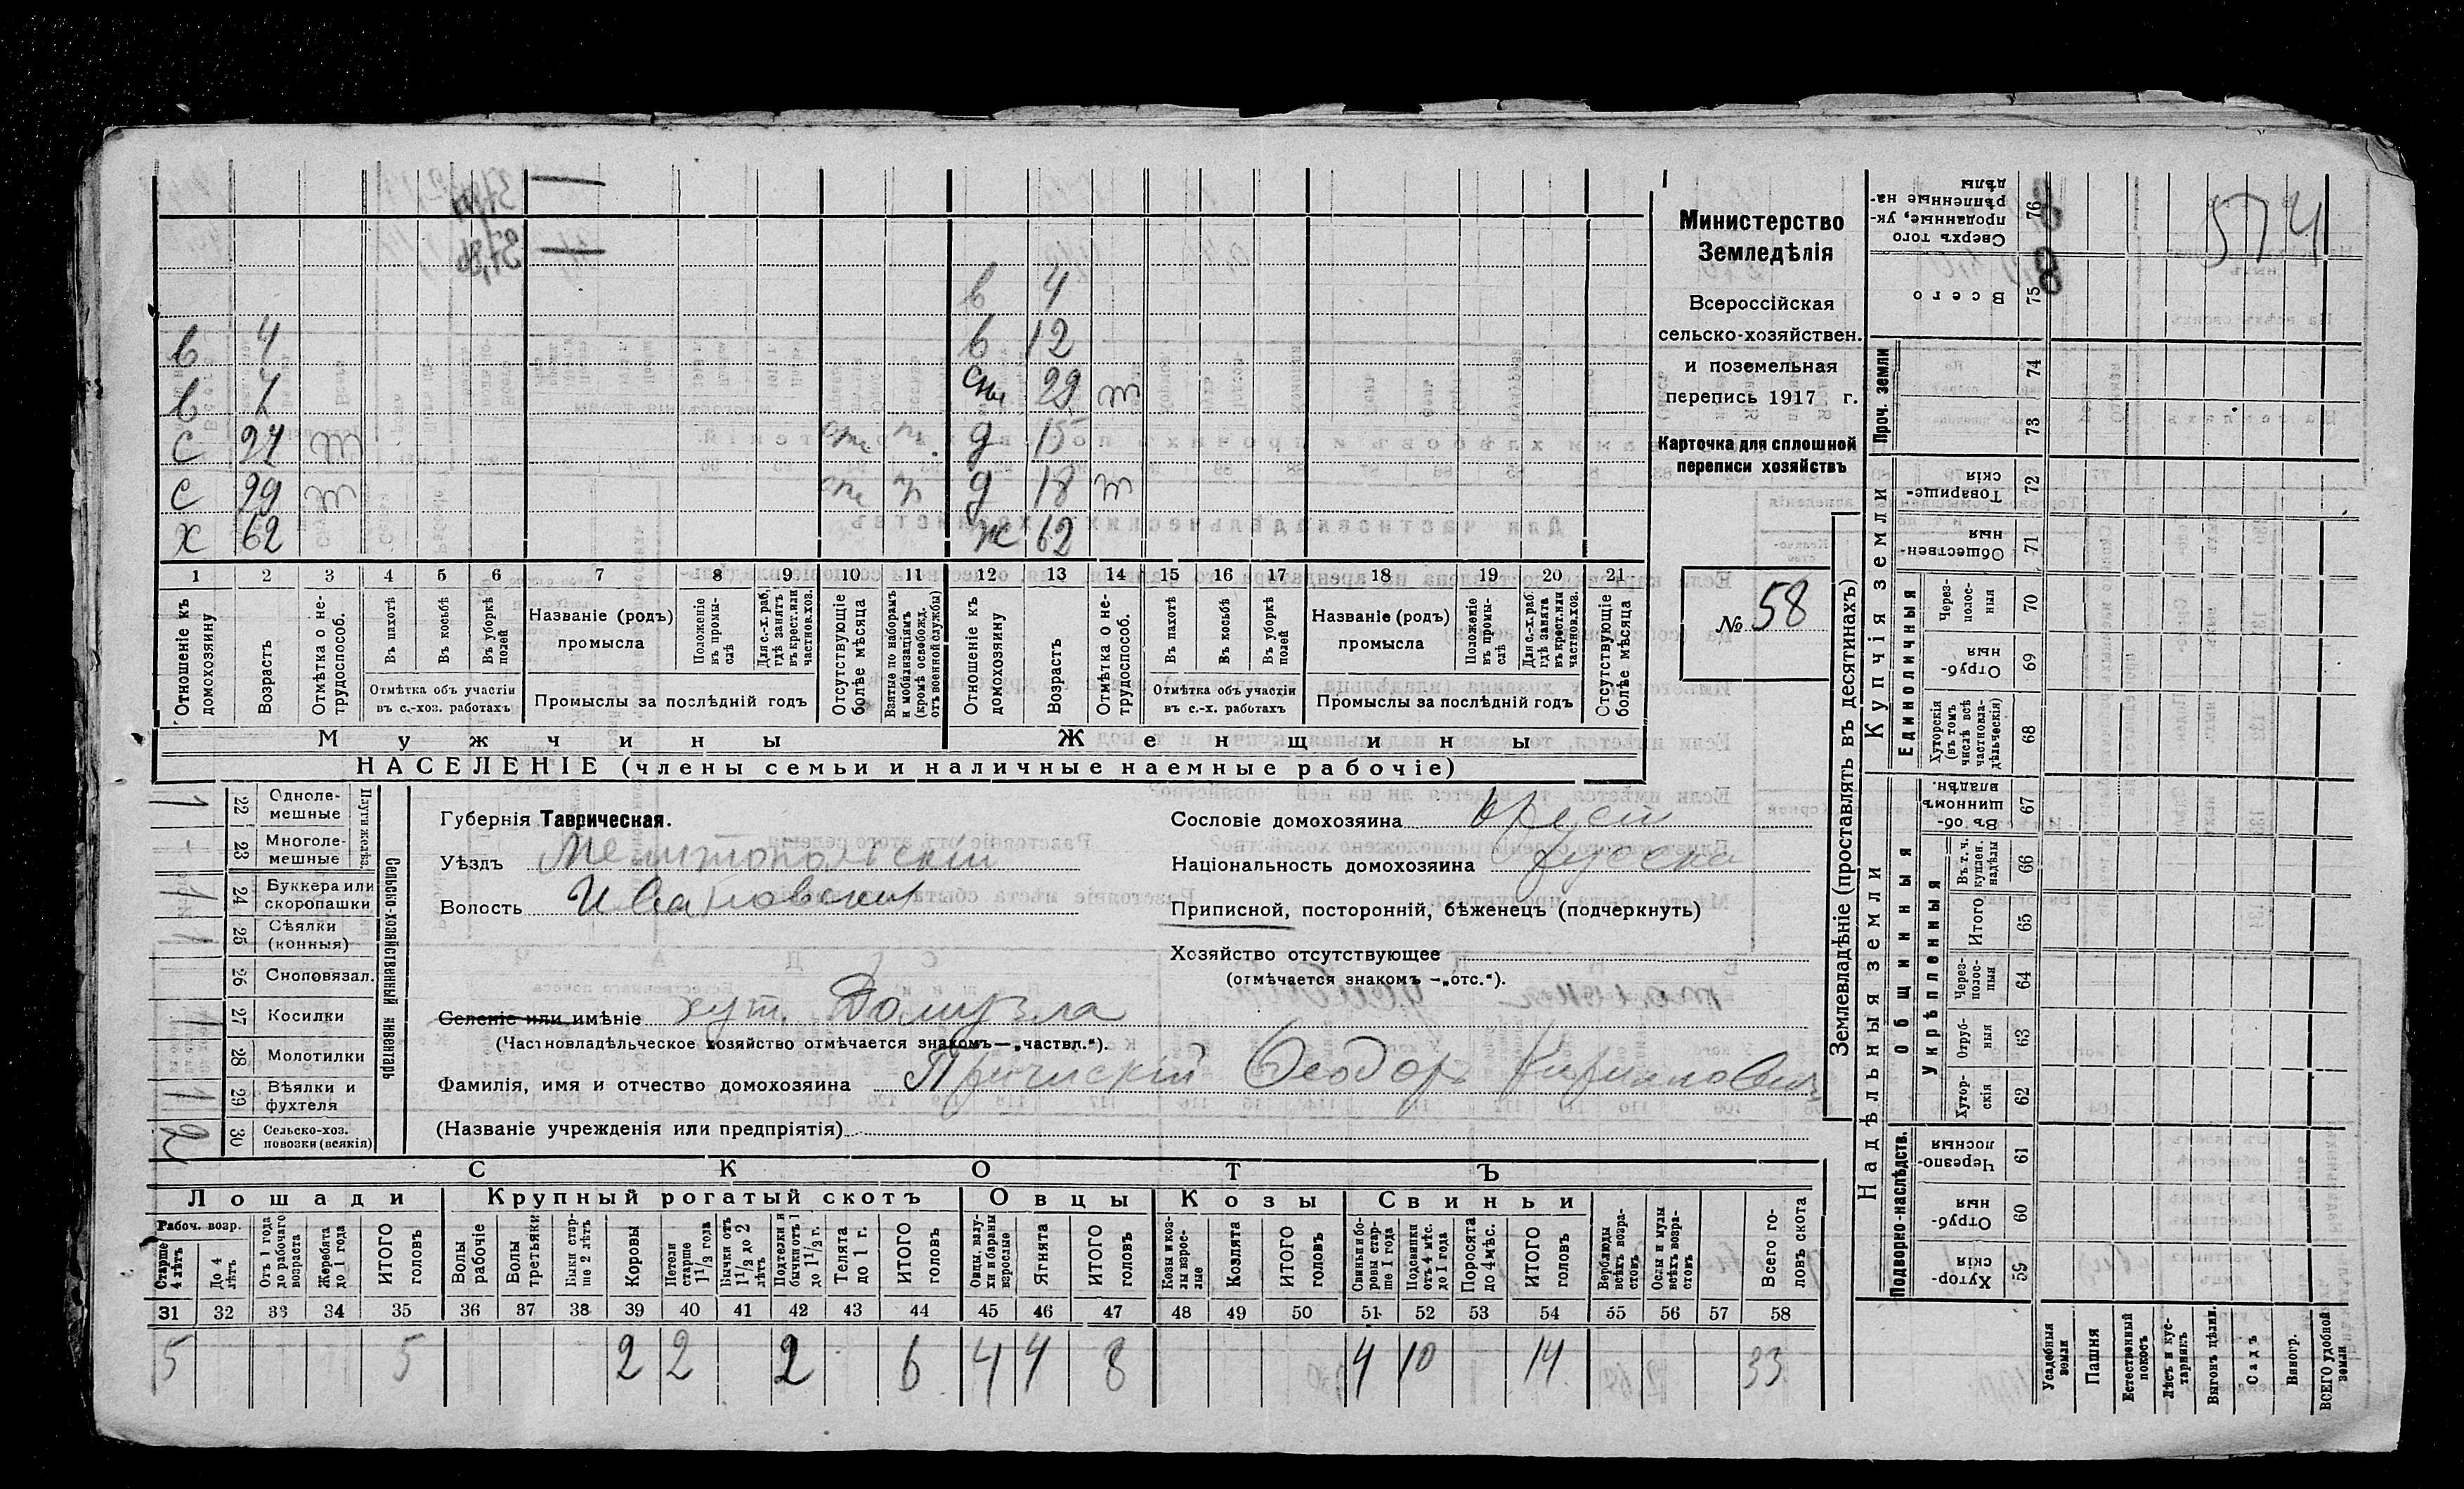 Министерство
Земледѣлія
Всероссійская
сельско-хозяйствен.
и поземельная
перепись 1917 г.
Карточка для сплошной
переписи хозяйствъ
№ 58
574
в 4
в 12
в 4 сн 29 т
в 1 д 15
с 27 т отс д 18 т
с 29 т отс ж 62
х 62
1 2 3 4 5 6 7 8 9 10 11 12 13 14 15 16 17 18 19 20 21
Отношеніе къ домохозяину
Возрастъ
Отмѣтка о не-трудоспособ.
Въ пахотѣ
Въ косьбѣ
Въ уборкѣ полей
Отмѣтка объ участіи въ с.-хоз. работахъ
Названіе (родъ) промысла
Положеніе въ промы-слѣ
Для с.-х. раб., гдѣ занятъ въ крест. или частнов. хоз.
Промыслы за послѣдній годъ
Отсутствующіе болѣе мѣсяца
Взятые по наборамъ и мобилизаціямъ (кромѣ освобожд. отъ военной службы)
Отношеніе къ домохозяину
Возрастъ
Отмѣтка о не-трудоспособ.
Въ пахотѣ
Въ косьбѣ
Въ уборкѣ полей
Отмѣтка объ участіи въ с.-х. работахъ
Названіе (родъ) промысла
Положеніе въ промы-слѣ
Для с.-х. раб. гдѣ занята въ крест. или частнов. хоз.
Промыслы за послѣдній годъ
Отсутствующіе болѣе мѣсяца
Мужчины
Женщины
НАСЕЛЕНІЕ (члены семьи и наличные наемные рабочіе)
Сельско-хозяйственный инвентарь
Плуги желѣз.
1 22 Одноле-мешные
- 23 Многоле-мешные
1 24 Буккера или скоропашки
1 25 Сѣялки (конныя)
26 Сноповязал.
1 27 Косилки
28 Молотилки
1 29 Вѣялки и фухтеля
2 30 Сельско-хоз. повозки (всякія)
Губернія Таврическая.
Уѣздъ Мелитопольскій
Волость Ивановская
Сословіе домохозяина
Національность домохозяина русска
Приписной, посторонній, бѣженецъ (подчеркнуть)
Хозяйство отсутствующее
(отмѣчается знакомъ —„отс.“).
Селеніе или имѣніе хут. Домузла
(Частновладѣльческое хозяйство отмѣчается знакомъ—„частвл.“).
Фамилія, имя и отчество домохозяина Ѳеодоръ Кирилловичъ
(Названіе учрежденія или предпріятія)
СКОТЪ
Лошади
Крупный рогатый скотъ
Овцы
Козы
Свиньи
Рабоч. возр.
Старше 4 лѣтъ
До 4 лѣтъ
Отъ 1 года до рабочаго возраста
Жеребята до 1 года
ИТОГО головъ
Волы рабочіе
Волы третьяки
Быки стар-ше 2 лѣтъ
Коровы
Нетели старше 1½ года
Бычки отъ 1½ до 2 лѣтъ
Подтелки и бычки отъ 1 до 1½ г.
Телята до 1 г.
ИТОГО головъ
Овцы, валу-хи и бараны взрослые
Ягнята
ИТОГО головъ
Козы и коз-лы взрос-лые
Козлята
ИТОГО головъ
Свиньи и бо-ровы стар-ше 1 года
Подсвинки отъ 4 мѣс. до 1 года
Поросята до 4 мѣс.
ИТОГО головъ
Верблюды всѣхъ возра-стовъ
Ослы и мулы всѣхъ возра-стовъ
Всего го-ловъ скота
31 32 33 34 35 36 37 38 39 40 41 42 43 44 45 46 47 48 49 50 51 52 53 54 55 56 57 58
5 5 2 2 2 6 4 4 8 4 10 14 33
Землевладѣніе (проставлять въ десятинахъ)
Надѣльныя земли
Купчія земли
Проч. земли
Подворно-наслѣдств.
Общинныя
Укрѣпленныя
Единоличныя
76 Сверхъ того проданные, ук-рѣпленные на-дѣлы
75 Всего
74
73
72 Товарище-скія
71 Обществен-ныя
70 Через-полос-ныя
69 Отруб-ныя
68 Хуторскія (въ томъ числѣ всѣ частновла-дѣльческія)
67 Въ об-щинномъ владѣн.
66 Въ т. ч. куплен. надѣлы
65 Итого
64 Через-полос-ныя
63 Отруб-ныя
62 Хутор-скія
61 Черезпо-лосныя
60 Отруб-ныя
59 Хутор-скія
Усадебныя земли
Пашня
Естественный покосъ
Лѣсъ и кус-тарникъ
Выгонъ цѣлин.
Садъ
Виногр.
ВСЕГО удобной земли